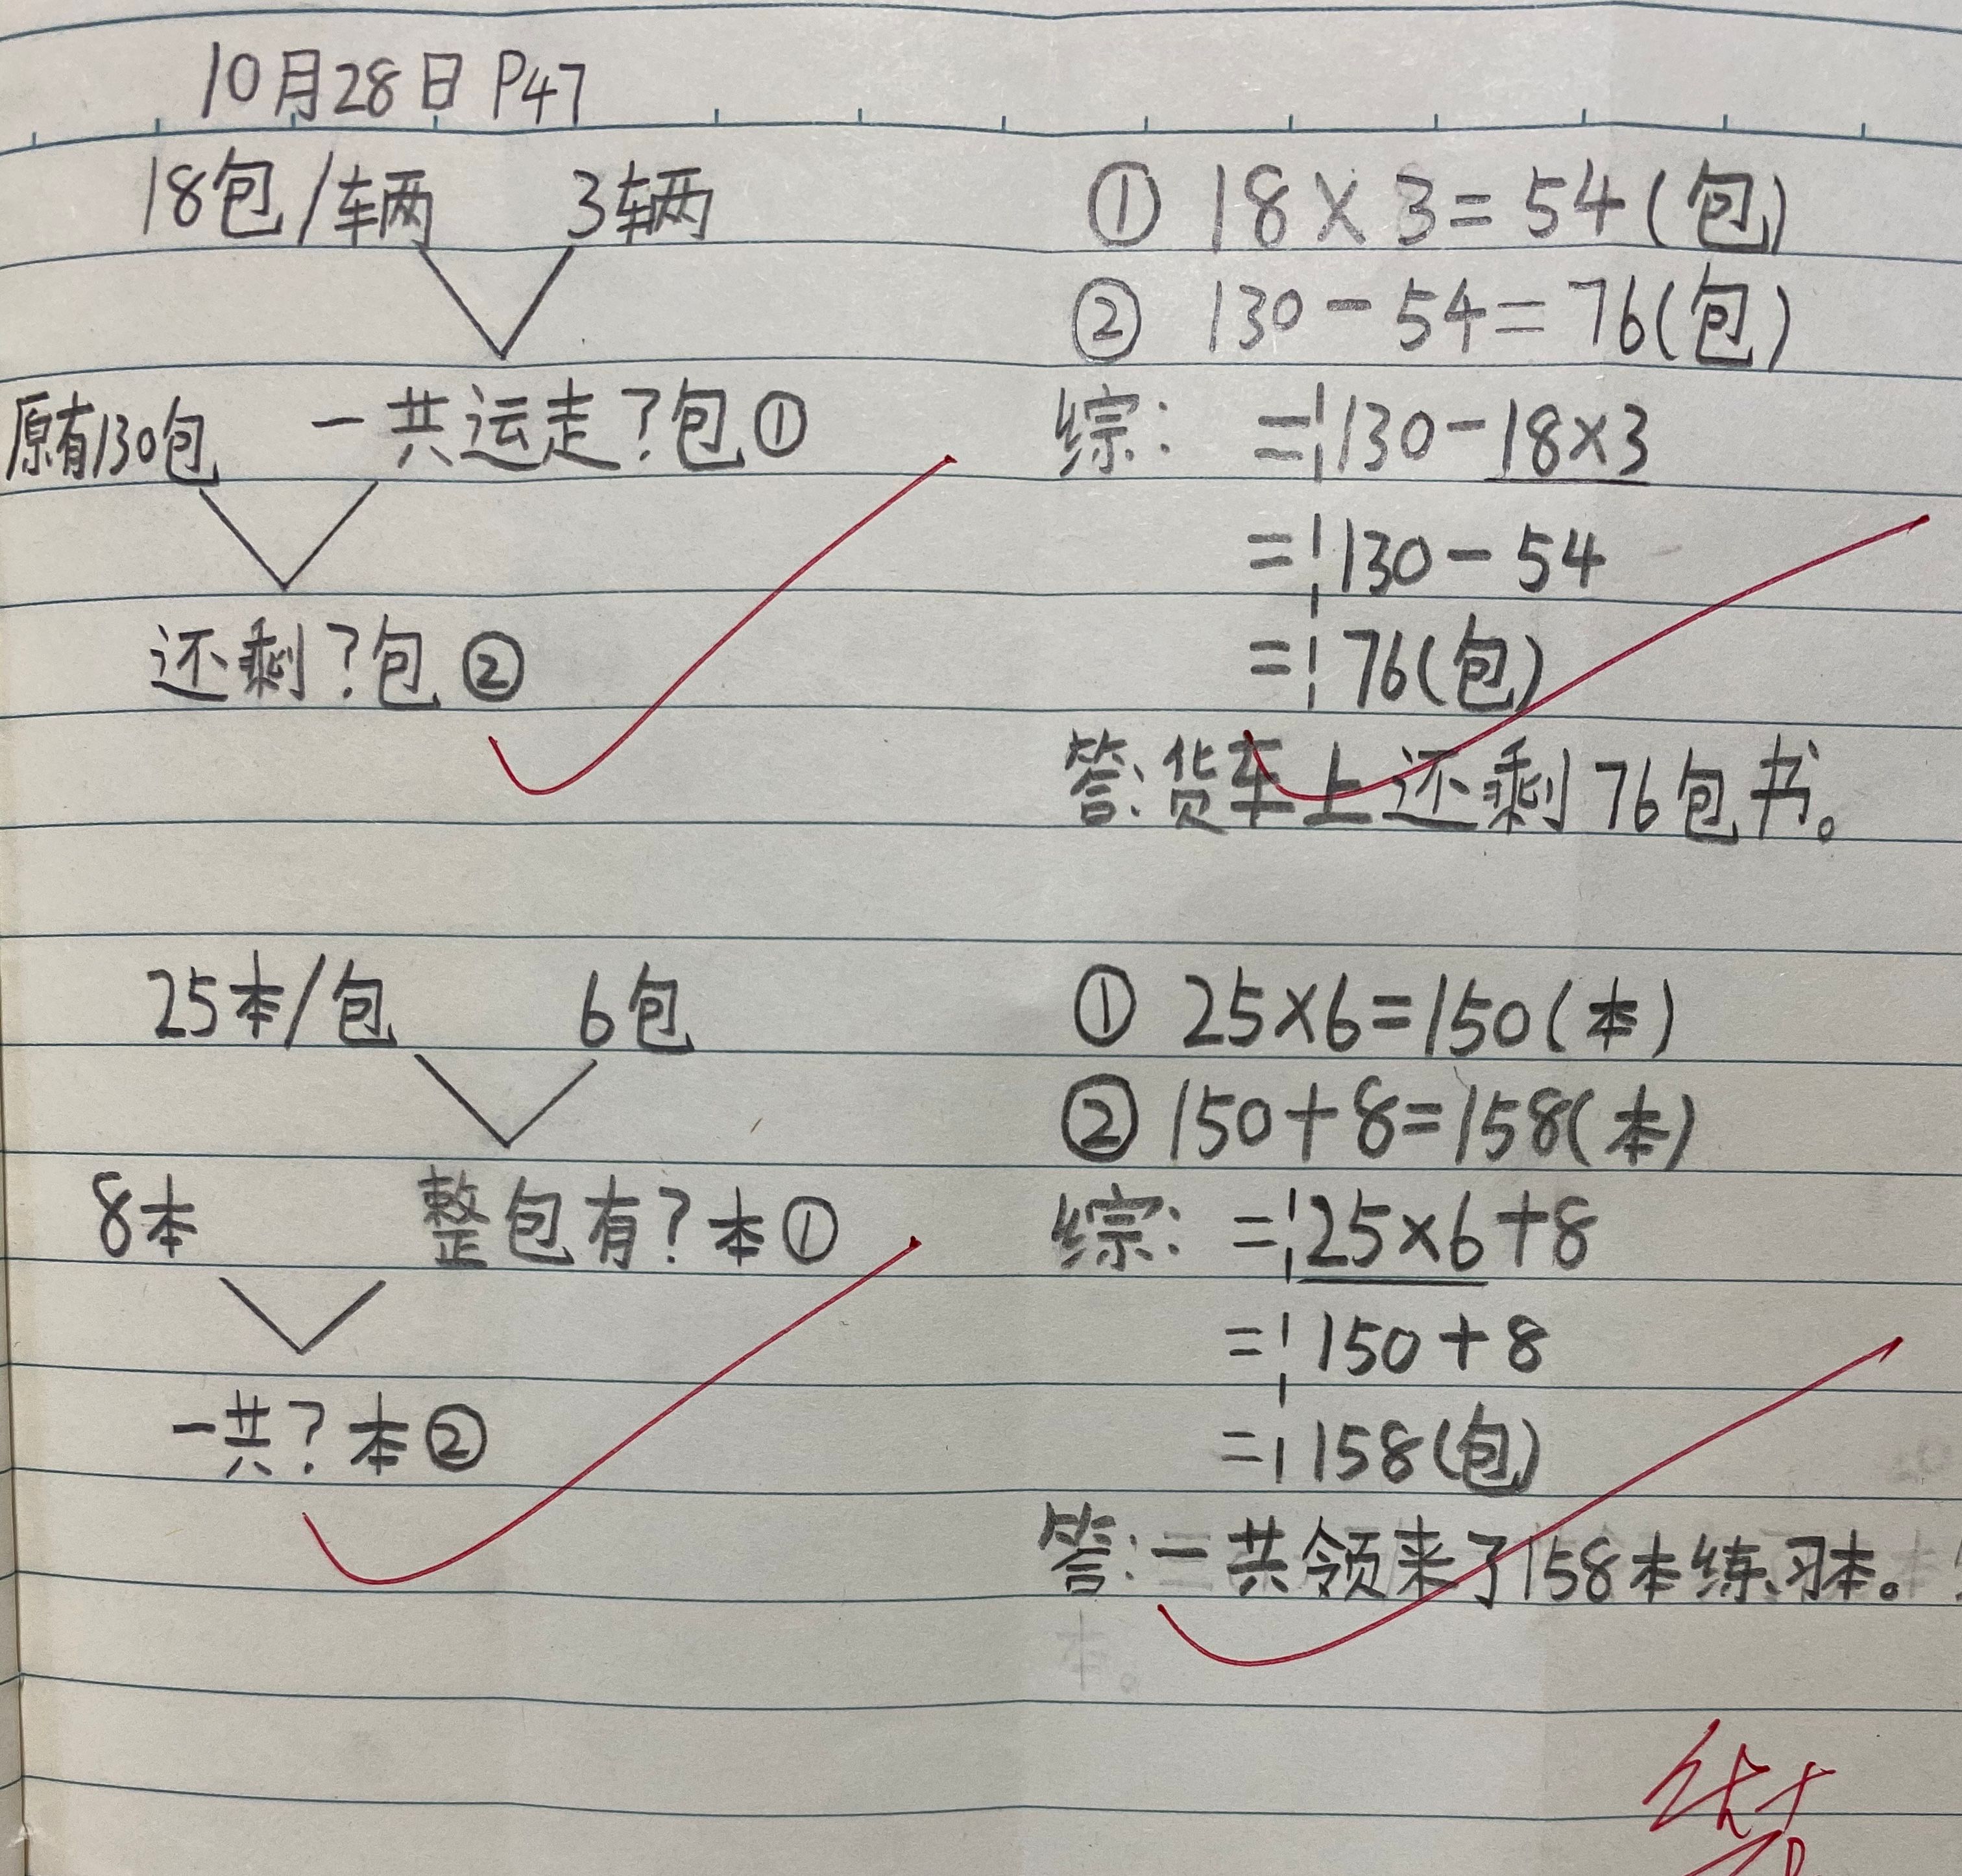 10月28日 P47
18包/车两 3车两
原有130包 一共运走?包①
还剩?包②
① 18×3=54(包)
② 130-54=76(包)
综: =130-18×3
=130-54
=76(包)
答:货车上还剩76包书。
25本/包 6包
8本 整包有?本①
一共?本②
① 25×6=150(本)
② 150+8=158(本)
综: =25×6+8
=150+8
=158(包)
答:一共领来了158本练习本。